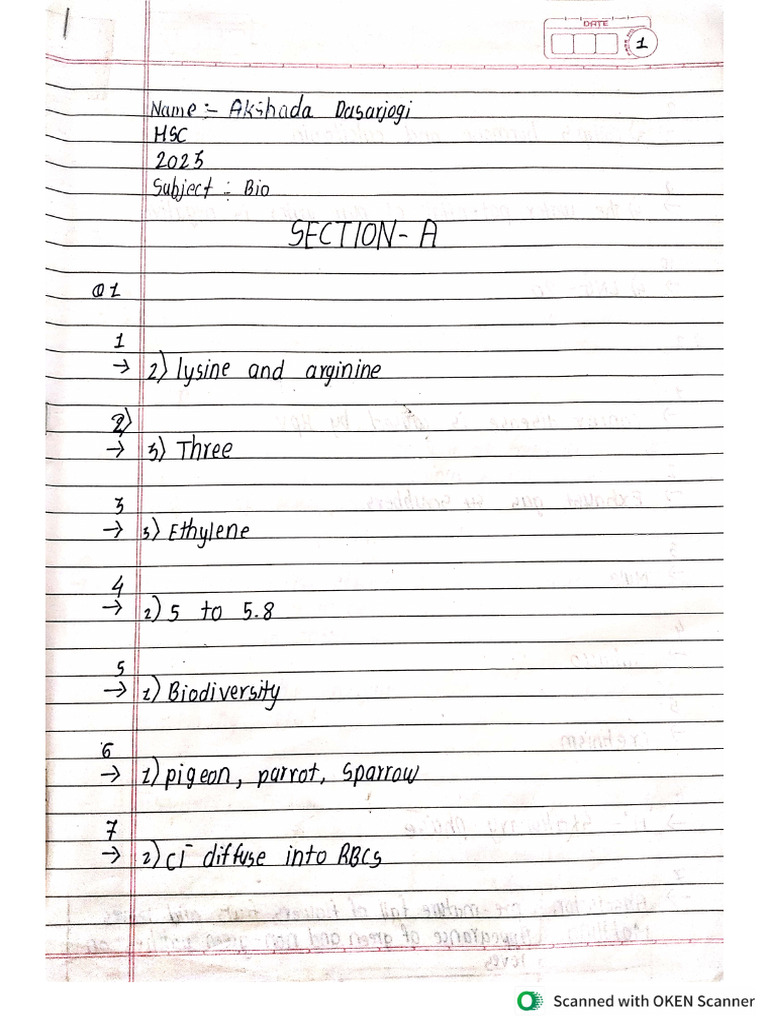 DATE
1
Name :- Akshada Dasarjogi
HSC
2023
Subject :- Bio
SECTION - A
Q1
1
→ 2) lysine and arginine
2)
→ 3) Three
3
→ 3) Ethylene
4
→ 2) 5 to 5.8
5
→ 1) Biodiversity
6
→ 1) pigeon, parrot, Sparrow
7
→ 2) Cl⁻ diffuse into RBCs
Scanned with OKEN Scanner